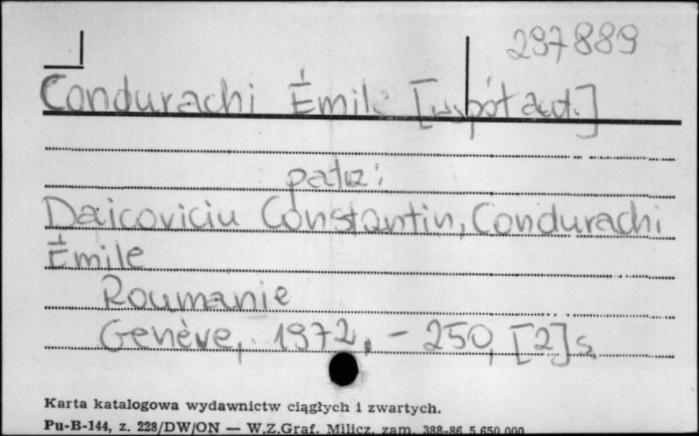 297889
Condurachi Émile [współaut.]
patrz:
Daicoviciu Constantin, Condurachi
Émile
Roumanie
Genève, 1972. - 250, [2] s.
Karta katalogowa wydawnictw ciągłych i zwartych.
Pu-B-144, z. 228/DW/ON — W.Z.Graf. Milicz, zam. 388-86 5.650.000